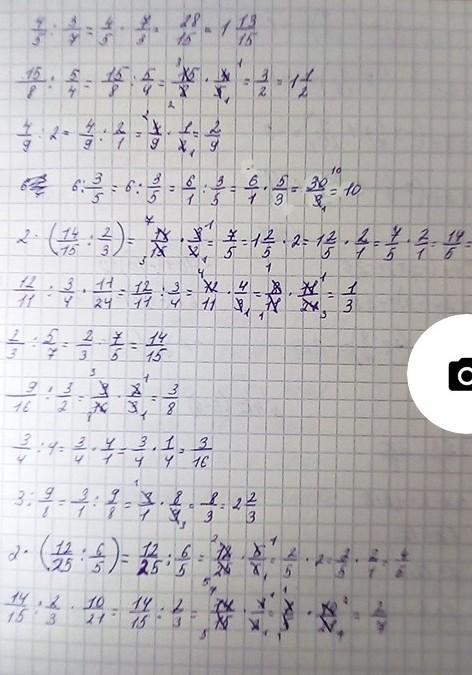 4/5 : 3/7 = 4/5 · 7/3 = 28/15 = 1 13/15
15/8 : 5/4 = 15/8 : 5/4 = 15/8 · 4/5 = 3/2 = 1 1/2
4/9 : 2 = 4/9 : 2/1 = 4/9 · 1/2 = 2/9
6 : 3/5 = 6 : 3/5 = 6/1 : 3/5 = 6/1 · 5/3 = 30/3 = 10
2 · (14/15 : 2/3) = 14/15 · 3/2 = 7/5 = 1 2/5 · 2 = 1 2/5 · 2/1 = 7/5 · 2/1 = 14/5 =
12/11 : 3/4 · 11/24 = 12/11 : 3/4 = 12/11 · 4/3 = · 11/24 = 1/3
2/3 : 5/7 = 2/3 · 7/5 = 14/15
9/16 : 3/2 = 9/16 · 2/3 = 3/8
3/4 : 4 = 3/4 · 4/1 = 3/4 · 1/4 = 3/16
3 : 9/8 = 3/1 : 9/8 = 3/1 · 8/9 = 8/3 = 2 2/3
2 · (12/25 : 6/5) = 12/25 : 6/5 = 12/25 · 5/6 = 2/5 · 2 = 2/5 · 2/1 = 4/5
14/15 : 2/3 · 10/21 = 14/15 : 2/3 = 14/15 ·